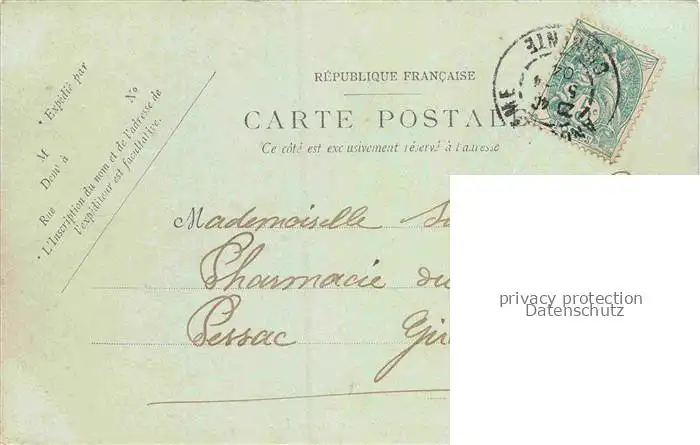 RÉPUBLIQUE FRANÇAISE
CARTE POSTALE
Ce côté est exclusivement réservé à l'adresse
* Expédié par
M
Nº
Demt à
Rue
* L'Inscription du nom et de l'adresse de
l'expéditeur est facultative.
Mademoiselle
Pharmacie du
Pessac
privacy protection
Datenschutz